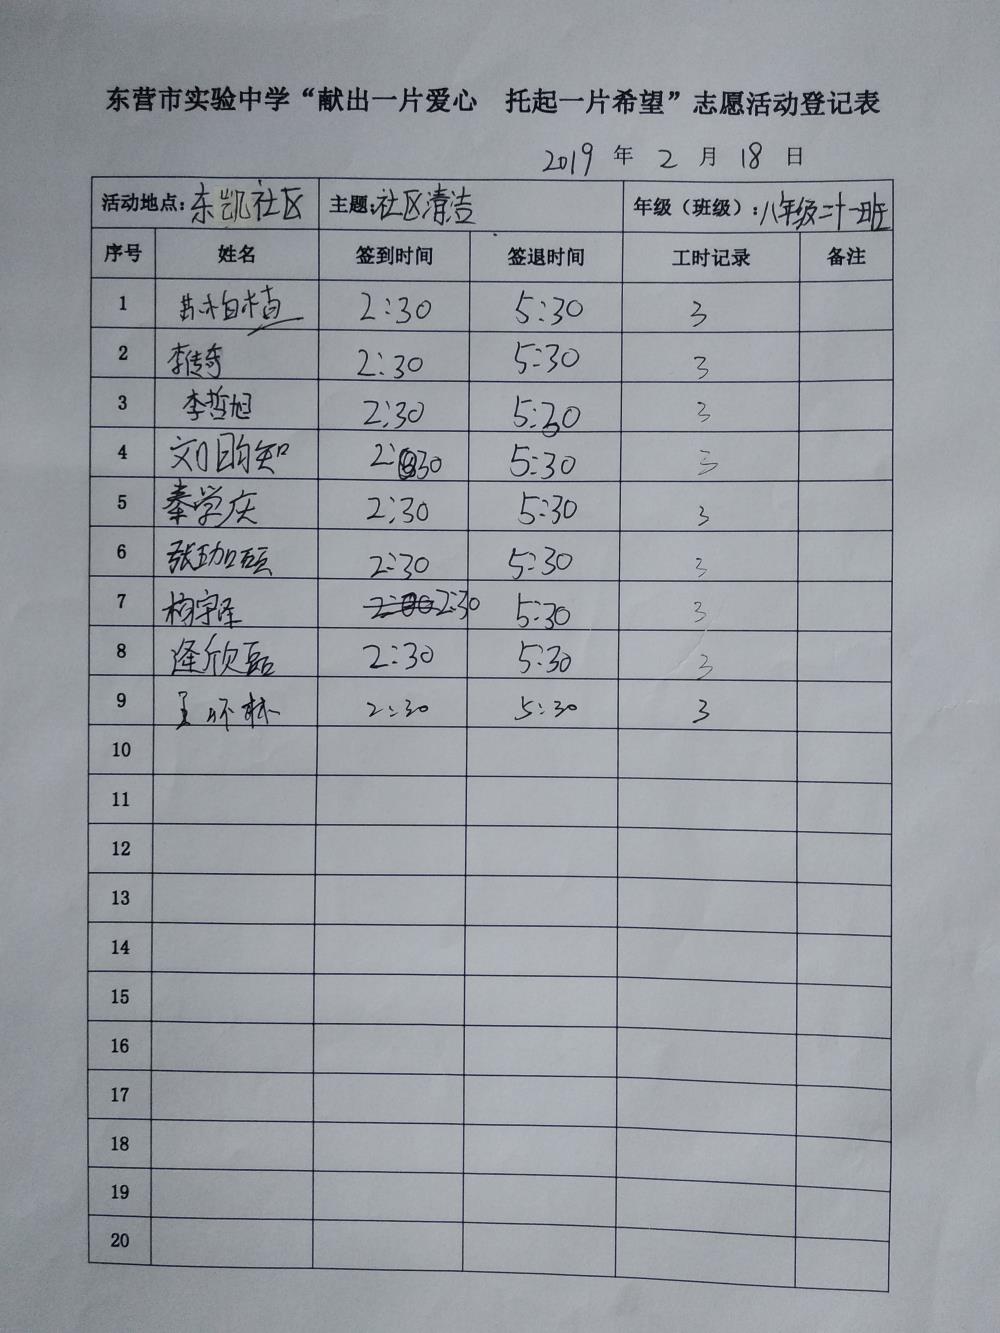 东营市实验中学“献出一片爱心 托起一片希望”志愿活动登记表
2019 年 2 月 18 日
活动地点:东凯社区 主题:社区清洁 年级（班级）:八年级二十一班
序号 姓名 签到时间 签退时间 工时记录 备注
1 2:30 5:30 3
2 李传奇 2:30 5:30 3
3 李哲旭 2:30 5:30 3
4 刘昀知 2:30 5:30 3
5 秦学庆 2:30 5:30 3
6 2:30 5:30 3
7 杨宇泽 2:30 5:30 3
8 逄欣磊 2:30 5:30 3
9 王怀林 2:30 5:30 3
10
11
12
13
14
15
16
17
18
19
20